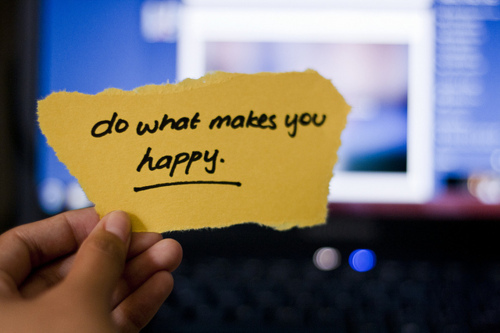 do what makes you
happy.